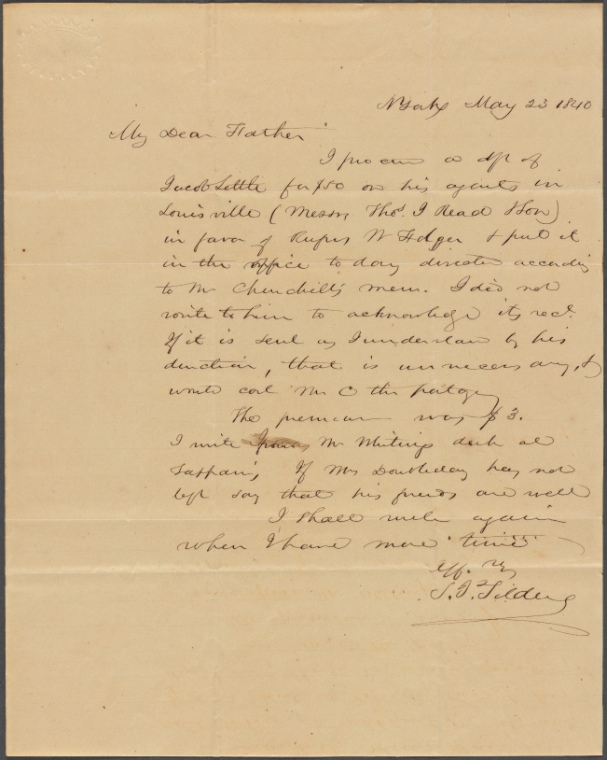 NYork May 23 1840
My Dear Father
I procure a dft of
Jacob Little for $50 on his agents in
Louisville (Messrs Thos. J Read & Son)
in favor of Rufus W
& put it
in the office to day directed according
to Mr Churchill's mem. I did not
write to him to acknowledge its rect.
If it is sent as I understand by his
direction, that is unnecessary, &
would cost Mr C the postage
The premium was $3.
I write from Mr Whitings desk at
If Mrs Doubleday has not
left say that his friends are well
I shall write again
when I have more time
S. J. Tilden